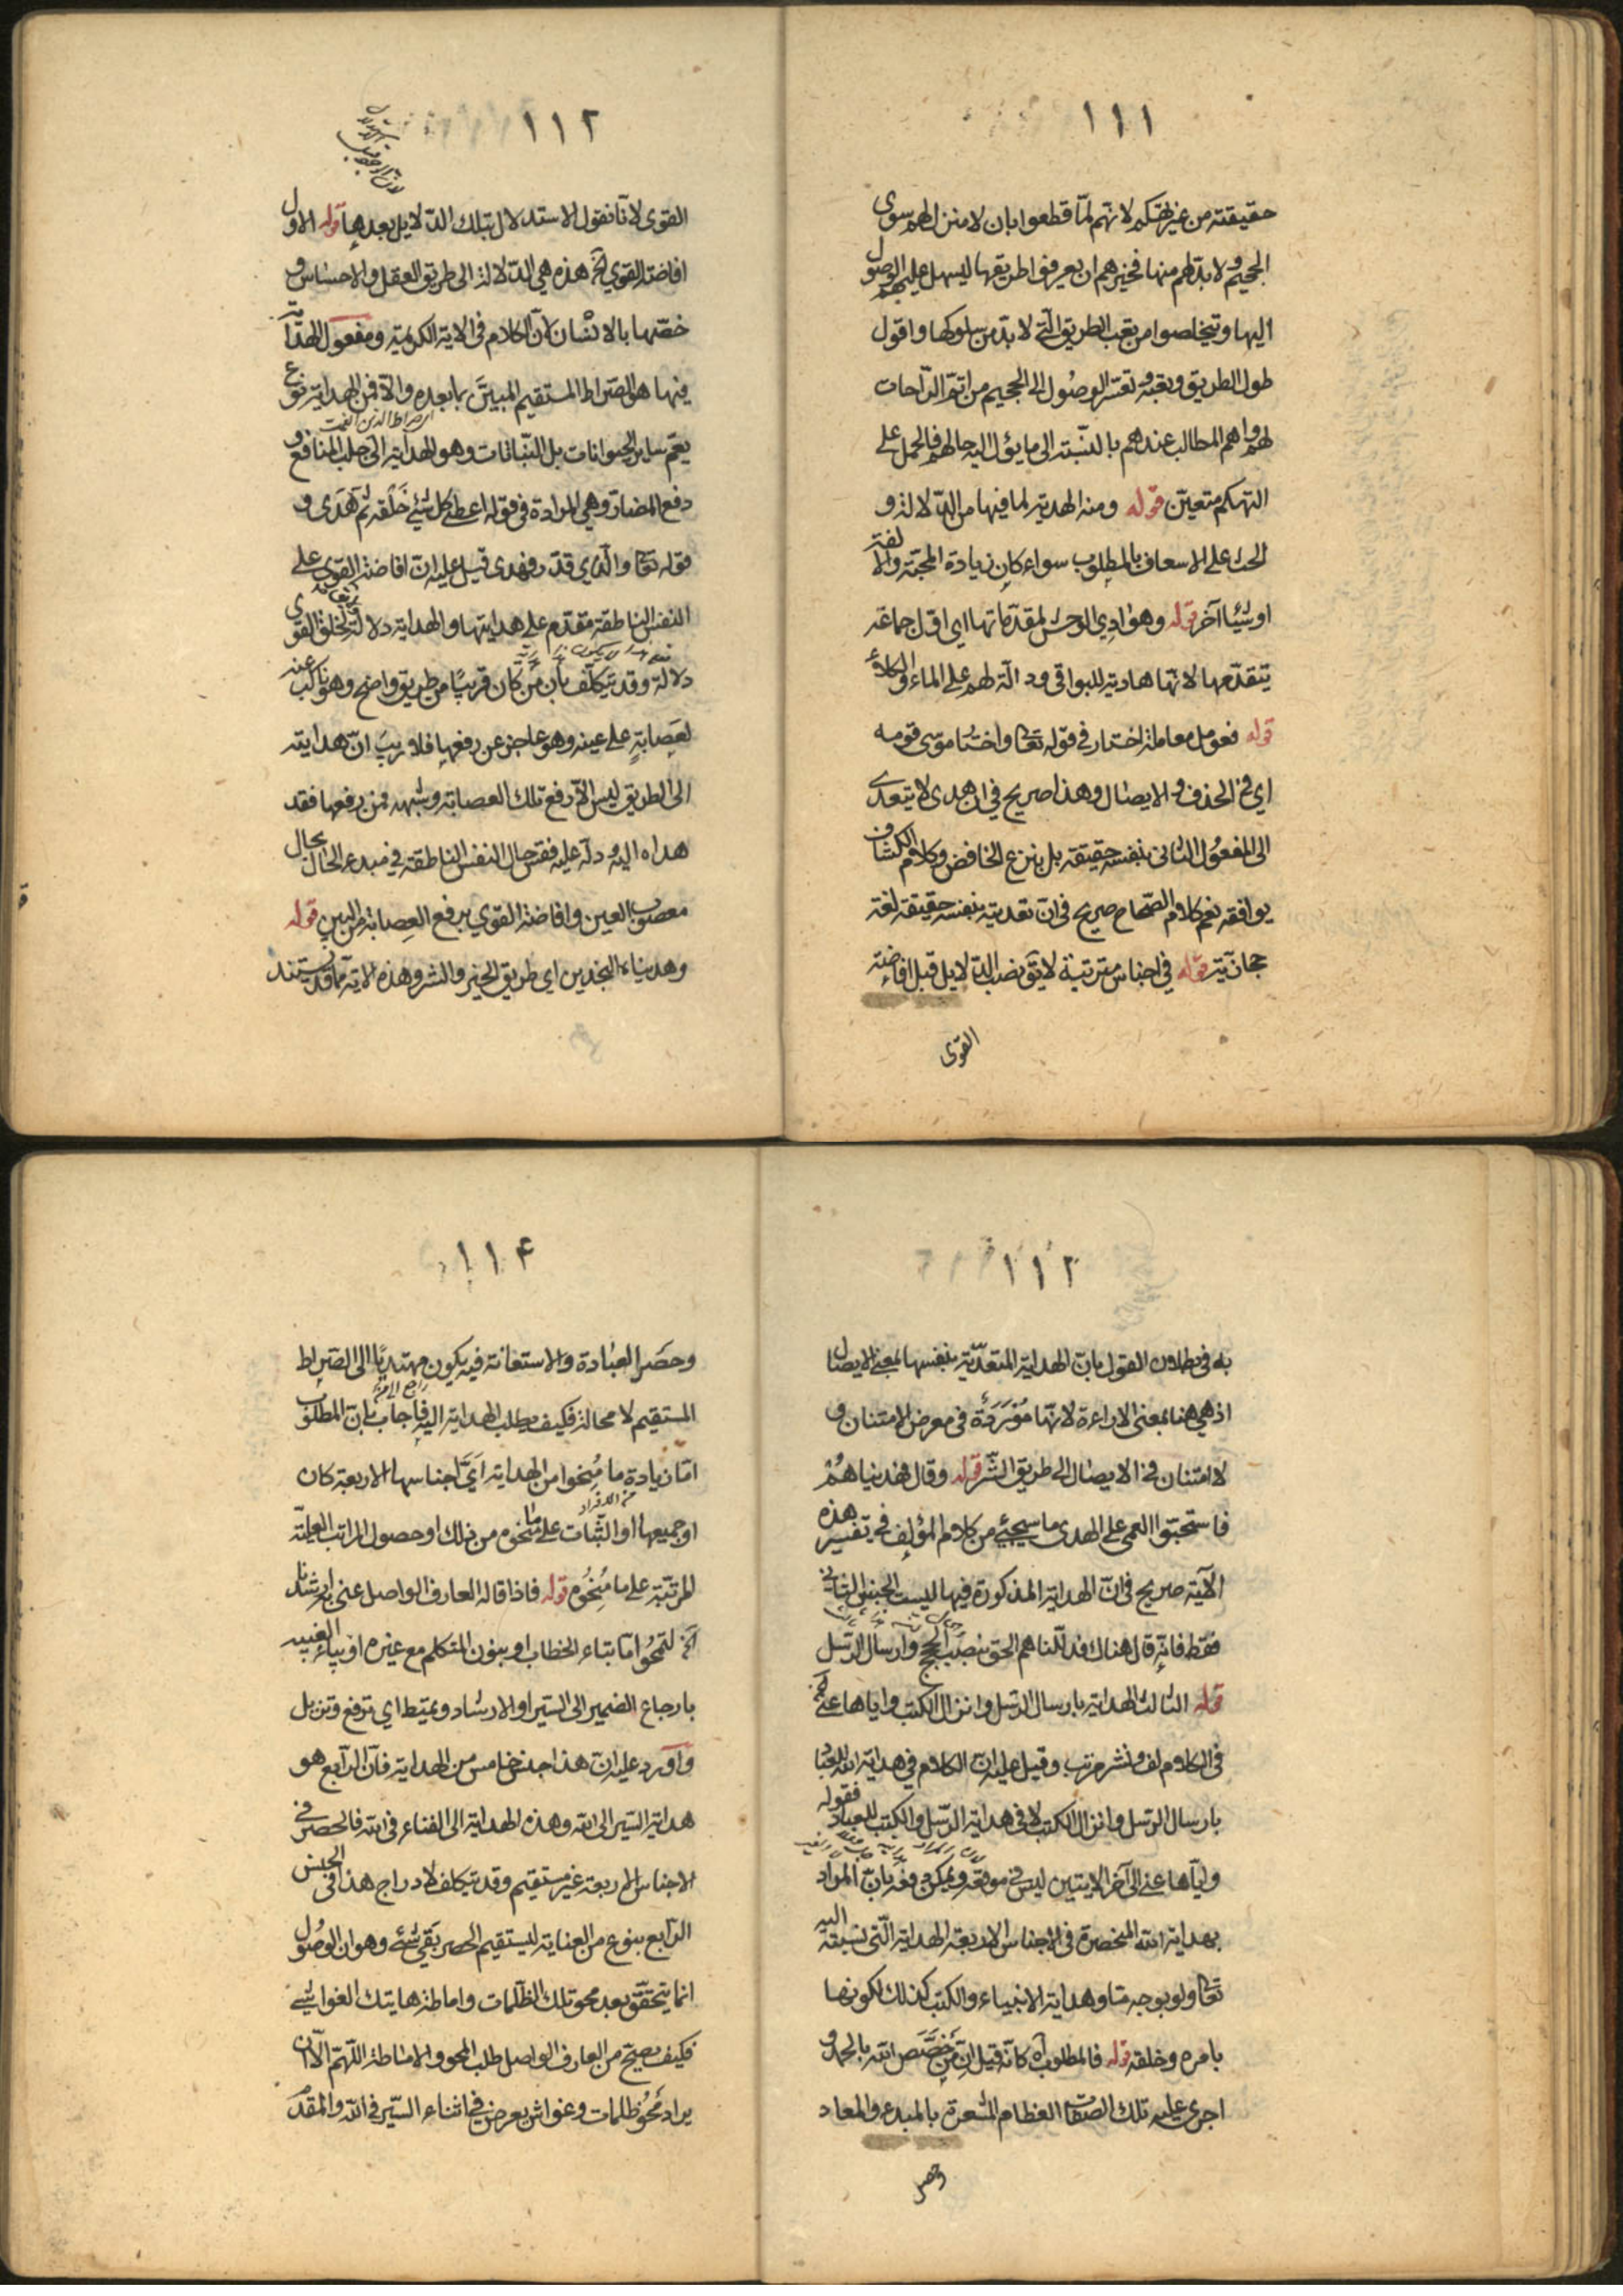 ١١١
حقيقته من غير تهكم لانهم لمّا قطعوا بان لا منزل لهم سوى
الجحيم ولا بد لهم منها فخيرهم ان يعرفوا طريقها ليسهل عليهم الوصول
اليها ويتخلصوا من تعب الطريق الّتي لا بدّ من سلوكها واقول
طول الطريق وتعبه وتعسّر الوصُول الى الجحيم من اتمّ الرّاحات
لهم واهم المطالب عندهم بالنسّبة الى ما يؤل اليه حالهم فالحمل على
التهكم متعيّن قوله ومنه الهديّة لما فيها من الدّلالة و
الحث على الاسعاف بالمطلوب سواء كان زيادة المحبّة والالفة
او شيئا آخر قوله وهوادي الوحش لمقدّماتها اي اوّل جماعة
يتقدّمها لانّها هادية للبواقي ودالّة لهم على الماء والكلاء
قوله فعومل معاملة اختار في قوله تعا واختار موسى قومه
اي في الحذف والايصال وهذا صريح في ان هدى لا يتعدى
الى المفعول الثانى بنفسه حقيقة بل بنزع الخافض وكلام الكشاف
يوافقه نعم كلام الصّحاح صريح في ان تعديته بنفسه حقيقة لغة
حجازيّة قوله في اجناس مترتبة لا يق نصب الدّلايل قبل افاضة
القوى
١١٢
القوى لانّا نقول الاستدلال بتلك الدّلايل بعدها قوله الاول
افاضة القوي الخ هذه هي الدّلالة الى طريق العقل والاحساس و
خصّها بالانسان لان الكلام في الاية الكريمة ومفعول الهداية
فيها هو الصراط المستقيم المبيّن بما بعده والّا فمن الهداية نوع
اي صراط الذين انعمت
يعم ساير الحيوانات بل النّباتات وهو الهداية الى جلب المنافع و
دفع المضار وهي المرادة في قوله اعطى كل شيئ خلقه ثم هدى و
قوله تعا والّذي قدّر فهدى قيل عليه انّ افاضة القوى على
النفس الناطقة متقدم على هدايتها والهداية دلالة وليس خلق القوى
دلالة وقد يتكلّف بأن من كان قريبًا من طريق واضح وهو ناكب عنه
لعصابةٍ على عينه وهو عاجز عن رفعها فلا ريب انّ هدايته
الى الطريق ليس الّا رفع تلك العصابة وشبهه فمن رفعها فقد
هداه اليه ودلّه عليه فقس حال النفس الناطقة في مبدء الحال بحال
معصوب العين وافاضة القوي برفع العصابة من البين قوله
وهديناه النجدين اي طريق الخير والشر وهذه الاية ممّا قد يستند
١١٣
به في بطلان القول بانّ الهداية المتعدّية بنفسها بمعنى الايصال
اذ هي هنا بمعنى الاراءة لانّها موردة في معرض الامتنان و
لا امتنان في الايصال الى طريق الشّر قوله وقال فهديناهُم
فاستحبّوا العمى على الهدى ما سيجيئ من كلام المؤلف في تفسير هذه
الآية صريح في انّ الهداية المذكورة فيها ليست الجنس الثاني
فقط فانّه قال هناك فدلّلناهم الحق بنصب الحجج وارسال الرّسل
قوله الثالث الهداية بارسال الرّسل وانزال الكتب واياها عنى الخ
في الكلام لف ونشر مرتب وقيل عليه انّ الكلام في هداية الله للعباد
بارسال الرسل وانزال الكتب لا في هداية الرّسل والكتب للعباد فقوله
وايّاها عنى الى آخر الايتين ليس في موقعه ويمكن دفعه بانّ المراد
بهداية الله المنحصرة في الاجناس الاربعة الهداية الّتي نسبته اليه
تعا ولو بوجه مّا وهداية الانبياء والكتب كذلك لكونها
بامره وخلقه قوله فالمطلوب آه كانّه قيل انّ من خصّص الله بالحمد و
اجرى عليه تلك الصفات العظام المشعرة بالمبدء والمعاد
وحصر
١١۴
وحصَر العبادة والاستعانة فيه يكون مهتديًا الى الصّراط
المستقيم لا محالة فكيف يطلب الهداية اليه فاجاب بانّ المطلوب
امّا زيادة ما مُنِحوا من الهداية ايّ اجناسها الاربعة كان
من الافراد
او جميعها او الثّبات على ما منحوه من ذلك او حصول المراتب العليّة
المرتبّة على ما مُنِحُوه قوله فاذا قاله العارف الواصل عنى به ارشدنا
الخ لتمحُو امّا بتاء الخطاب او بنون المتكلم مع غيره او بياء الغيبه
بارجاع الضمير الى السّير او الارشاد ونميط اي نرفع ونزيل
واورد عليه انّ هذا جنس خامس من الهداية فان الرّابع هو
هداية السّير الى الله وهذه الهداية الى الفناء في الله فالحصر في
الاجناس الاربعة غير مستقيم وقد يتكلف لادراج هذا في الجنس
الرّابع بنوع من العناية ليستقيم الحصر بَقي شئ وهو ان الوصُول
انما يتحقّق بعد محو تلك الظلمات واماطة هاتيك الغواشي
فكيف يصحّ من العارف الواصل طلب المحو والاماطة اللّهم الّا ان
يراد مَحْو ظلمات وغواش يعرض في اثناء السّير في الله والمقدّ